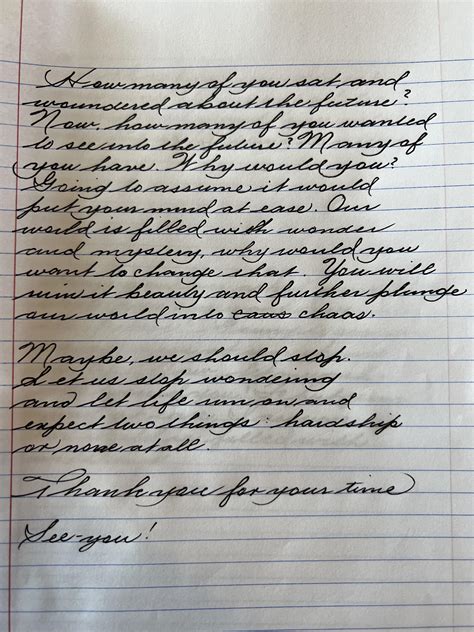 How many of you sat and
woundered about the future?
Now, how many of you wanted
to see into the future? Many of
you have. Why would you?
Going to assume it would
put your mind at ease. Our
world is filled with wonder
and mystery, why would you
want to change that. You will
ruin it beauty and further plunge
our world into caus chaos.
Maybe, we should stop.
Let us stop wondering
and let life run on and
expect two things: hardship
or none at all.
Thank you for your time
See-you!